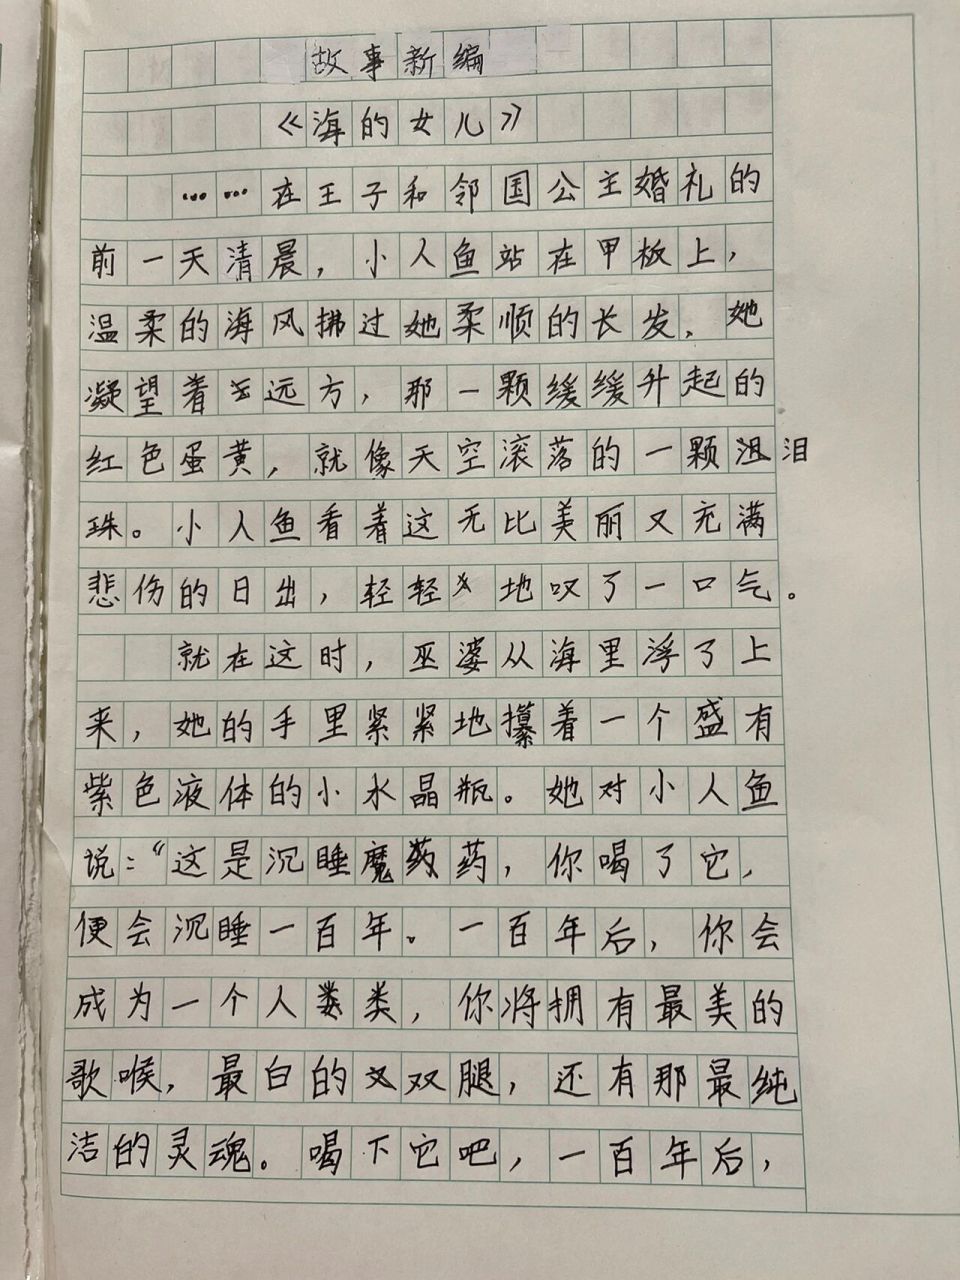 故事新编
《海的女儿》
……在王子和邻国公主婚礼的
前一天清晨，小人鱼站在甲板上，
温柔的海风拂过她柔顺的长发，她
凝望着远方，那一颗缓缓升起的
红色蛋黄，就像天空滚落的一颗泪
珠。小人鱼看着这无比美丽又充满
悲伤的日出，轻轻地叹了一口气。
就在这时，巫婆从海里浮了上
来，她的手里紧紧地攥着一个盛有
紫色液体的小水晶瓶。她对小人鱼
说：“这是沉睡魔药，你喝了它，
便会沉睡一百年。一百年后，你会
成为一个人类，你将拥有最美的
歌喉，最白的双腿，还有那最纯
洁的灵魂。喝下它吧，一百年后，